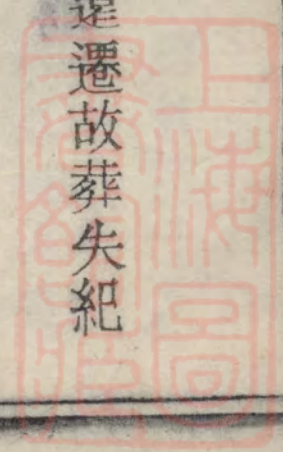 遷故葬失紀
上海圖
書館藏